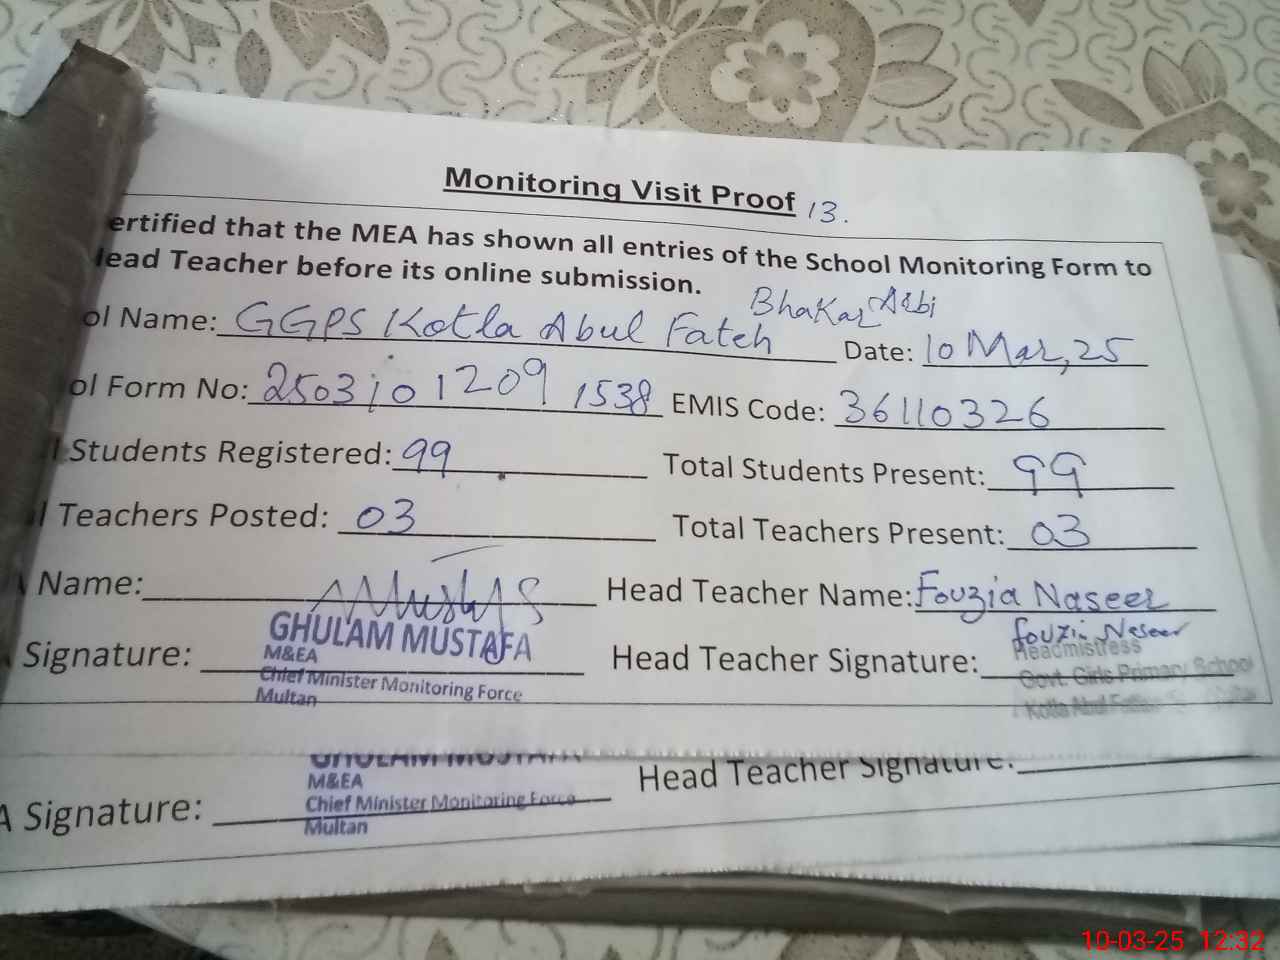 Monitoring Visit Proof 13.
ertified that the MEA has shown all entries of the School Monitoring Form to
lead Teacher before its online submission.
Bhakar Arbi
ol Name: GGPS Kotla Abul Fateh Date: 10 Mar, 25
ol Form No: 2503101209 1538 EMIS Code: 36110326
l Students Registered: 99 Total Students Present: 99
l Teachers Posted: 03 Total Teachers Present: 03
Name: Head Teacher Name: Fouzia Naseer
GHULAM MUSTAFA
Signature: Head Teacher Signature: Fouzia Naseer
M&EA
Chief Minister Monitoring Force
Multan
Headmistress
Govt. Girls Primary School
Kotla Abul
GHULAM MUSTAFA
M&EA
Chief Minister Monitoring Force
Multan
A Signature: Head Teacher Signature:
10-03-25 12:32